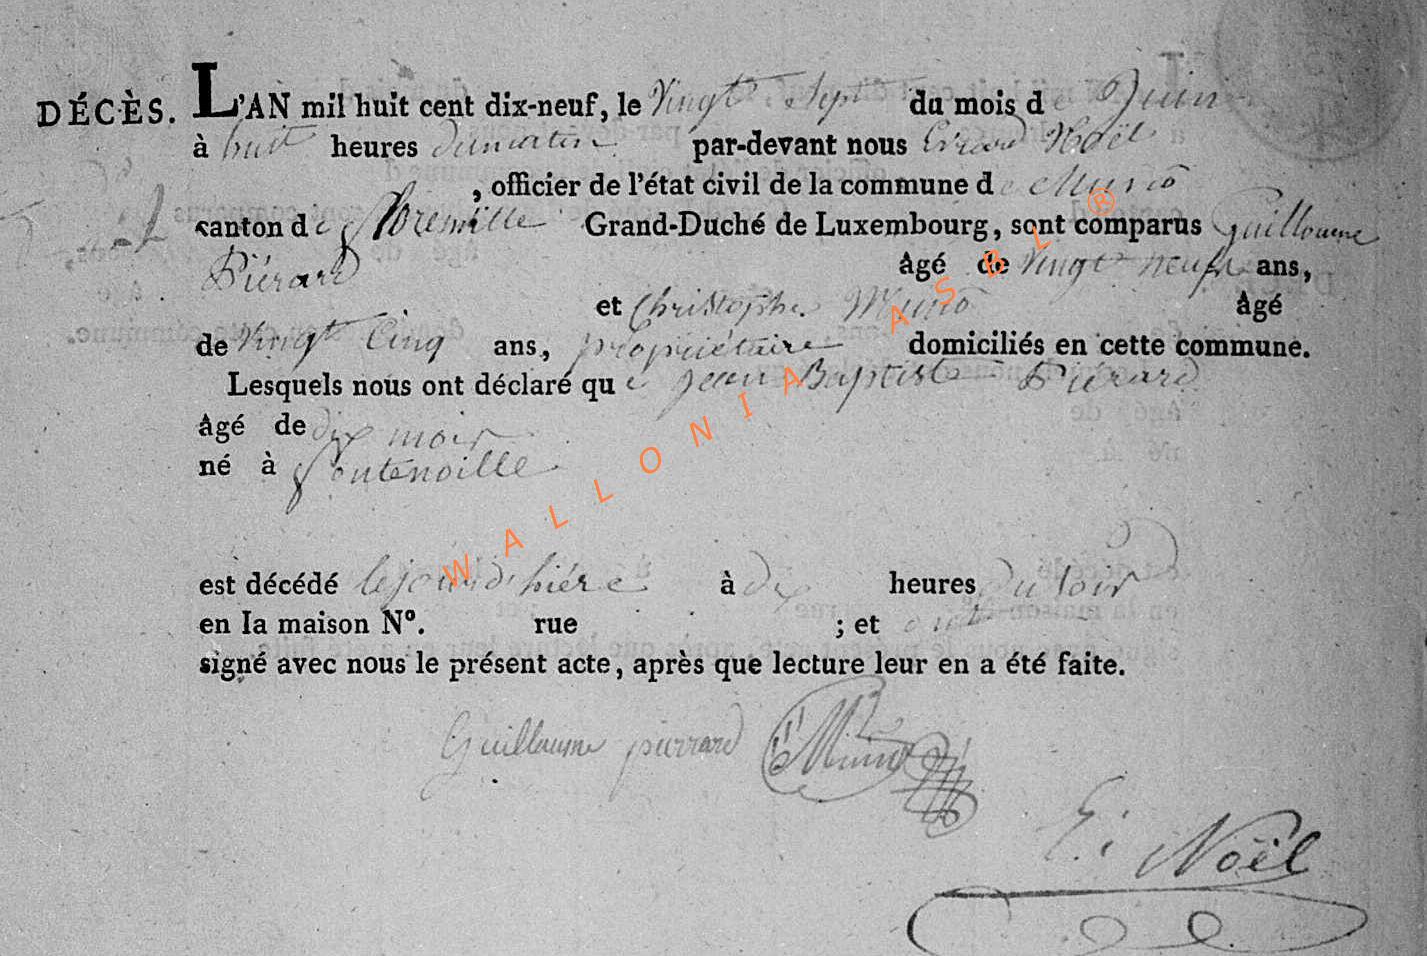 DÉCÈS. L'AN mil huit cent dix-neuf, le Vingt Sept du mois de Juin
à huit heures du matin par-devant nous Erard Noël
, officier de l'état civil de la commune de Muno
canton de Florenville Grand-Duché de Luxembourg, sont comparus Guillaume
Piérard âgé de Vingt neuf ans,
et Christophe Muno âgé
de Vingt Cinq ans, propriétaire domiciliés en cette commune.
Lesquels nous ont déclaré que jean Baptiste Piérard
âgé de dix mois
né à fontenoille
est décédé le jour d'hiére à dix heures du soir
en la maison N°. rue ; et ont
signé avec nous le présent acte, après que lecture leur en a été faite.
Guillaume pierrard Muno
E: Noël
WALLONIA ASBL ®